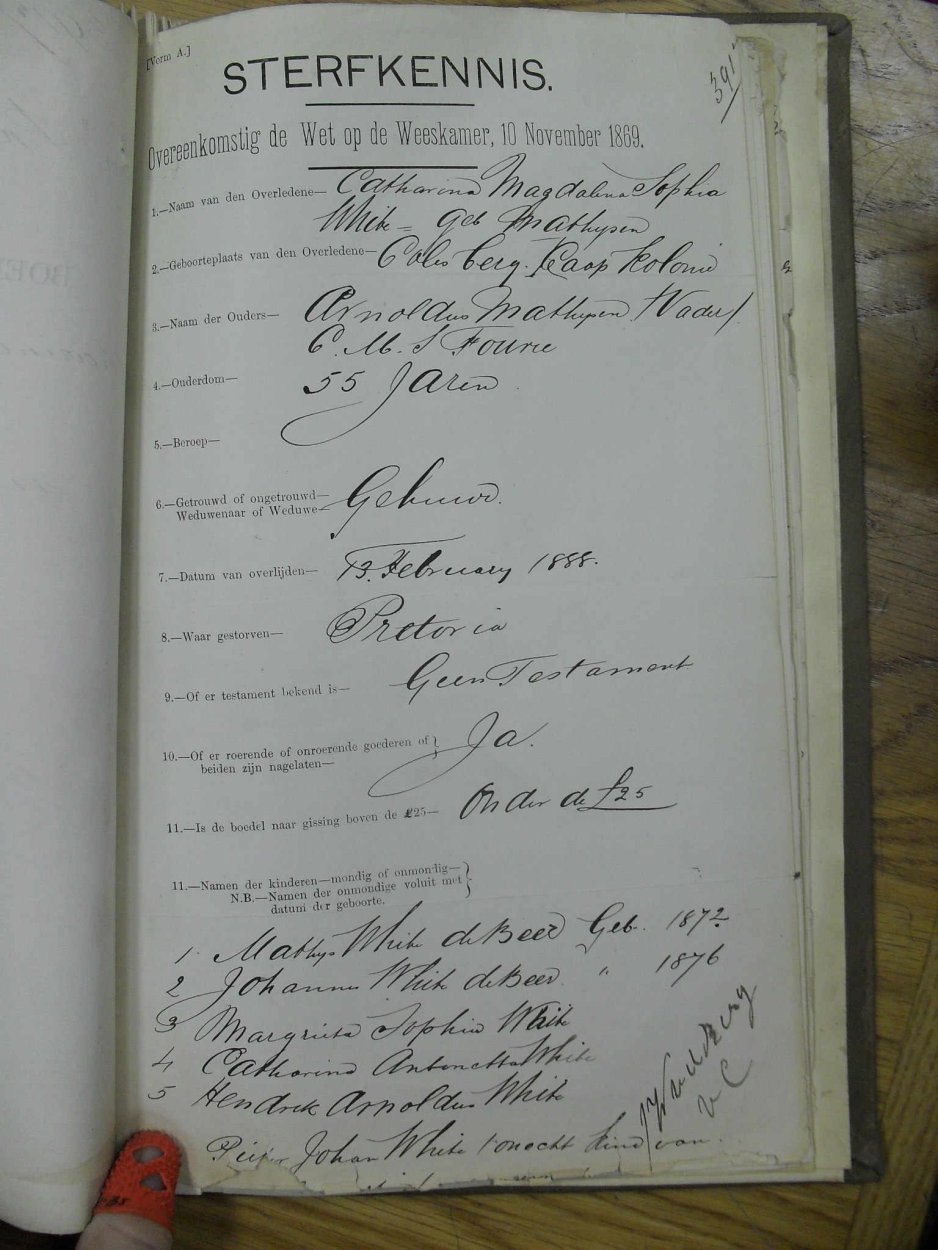 [Vorm A.]
391
STERFKENNIS.
Overeenkomstig de Wet op de Weeskamer, 10 November 1869.
1.—Naam van den Overledene— Catharina Magdalena Sophia
White = geb Mathysen
2.—Geboorteplaats van den Overledene— Colesberg. Kaap Kolonie
3.—Naam der Ouders— Arnoldus Mathysen (Vader)
C. M. S Fourie
4.—Ouderdom— 55 Jaren
5.—Beroep—
6.—Getrouwd of ongetrouwd—
Weduwenaar of Weduwe— Gehuwd.
7.—Datum van overlijden— 13. February 1888.
8.—Waar gestorven— Pretoria
9.—Of er testament bekend is— Geen Testament
10.—Of er roerende of onroerende goederen of }
beiden zijn nagelaten— Ja.
11.—Is de boedel naar gissing boven de £25— Onder de £25
11.—Namen der kinderen—mondig of onmondig— }
N.B.—Namen der onmondige voluit met
datum der geboorte.
1 Mathys White de Beer Geb. 1872
2 Johannes White de Beer " 1876
3 Margrieta Sophia White
4 Catharina Antonetta White
5 Hendrik Arnoldus White
Pieter Johan White onecht kind van